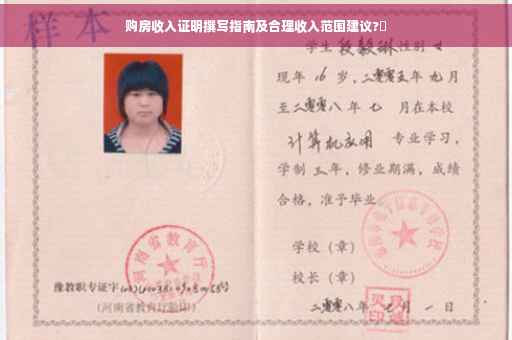 购房收入证明撰写指南及合理收入范围建议?
样本
学生段毅琳性别女
现年16岁,二零零五年九月
至二零零八年七月在本校
计算机应用 专业学习,
学制三年,修业期满,成绩
合格,准予毕业。
学校(章)
校长(章)
二零零八年七月一日
河南省教育厅
豫教职专证字
(河南省教育厅验印)